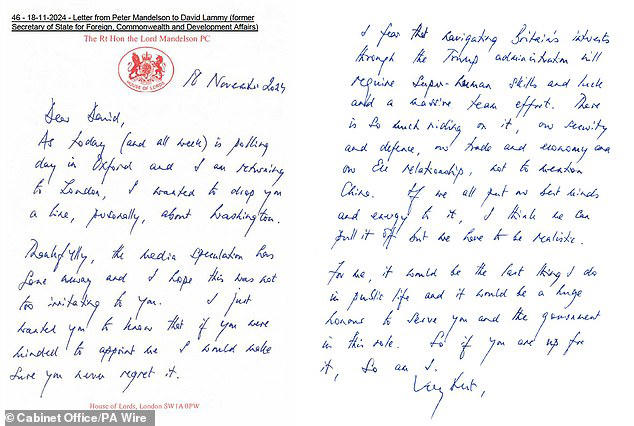 46 - 18-11-2024 - Letter from Peter Mandelson to David Lammy (former
Secretary of State for Foreign, Commonwealth and Development Affairs)
The Rt Hon the Lord Mandelson PC
HOUSE OF LORDS
18 November 2024
Dear David,
As today (and all week) is polling
day in Oxford and I am returning
to London, I wanted to drop you
a line, personally, about Washington.
Thankfully, the media speculation has
gone away and I hope this was not
too irritating to you. I just
wanted you to know that if you were
minded to appoint me I would make
sure you never regret it.
House of Lords, London SW1A 0PW
I fear that navigating Britain's interests
through the Trump administration will
require super-human skills and luck
and a massive team effort. There
is so much riding on it, our security
and defence, our trade and economy and
our EU relationship, not to mention
China. If we all put our best minds
and energy to it, I think we can
pull it off but we have to be realistic.
For me, it would be the last thing I do
in public life and it would be a huge
honour to serve you and the government
in this role. So if you are up for
it, so am I.
Very best,
© Cabinet Office/PA Wire